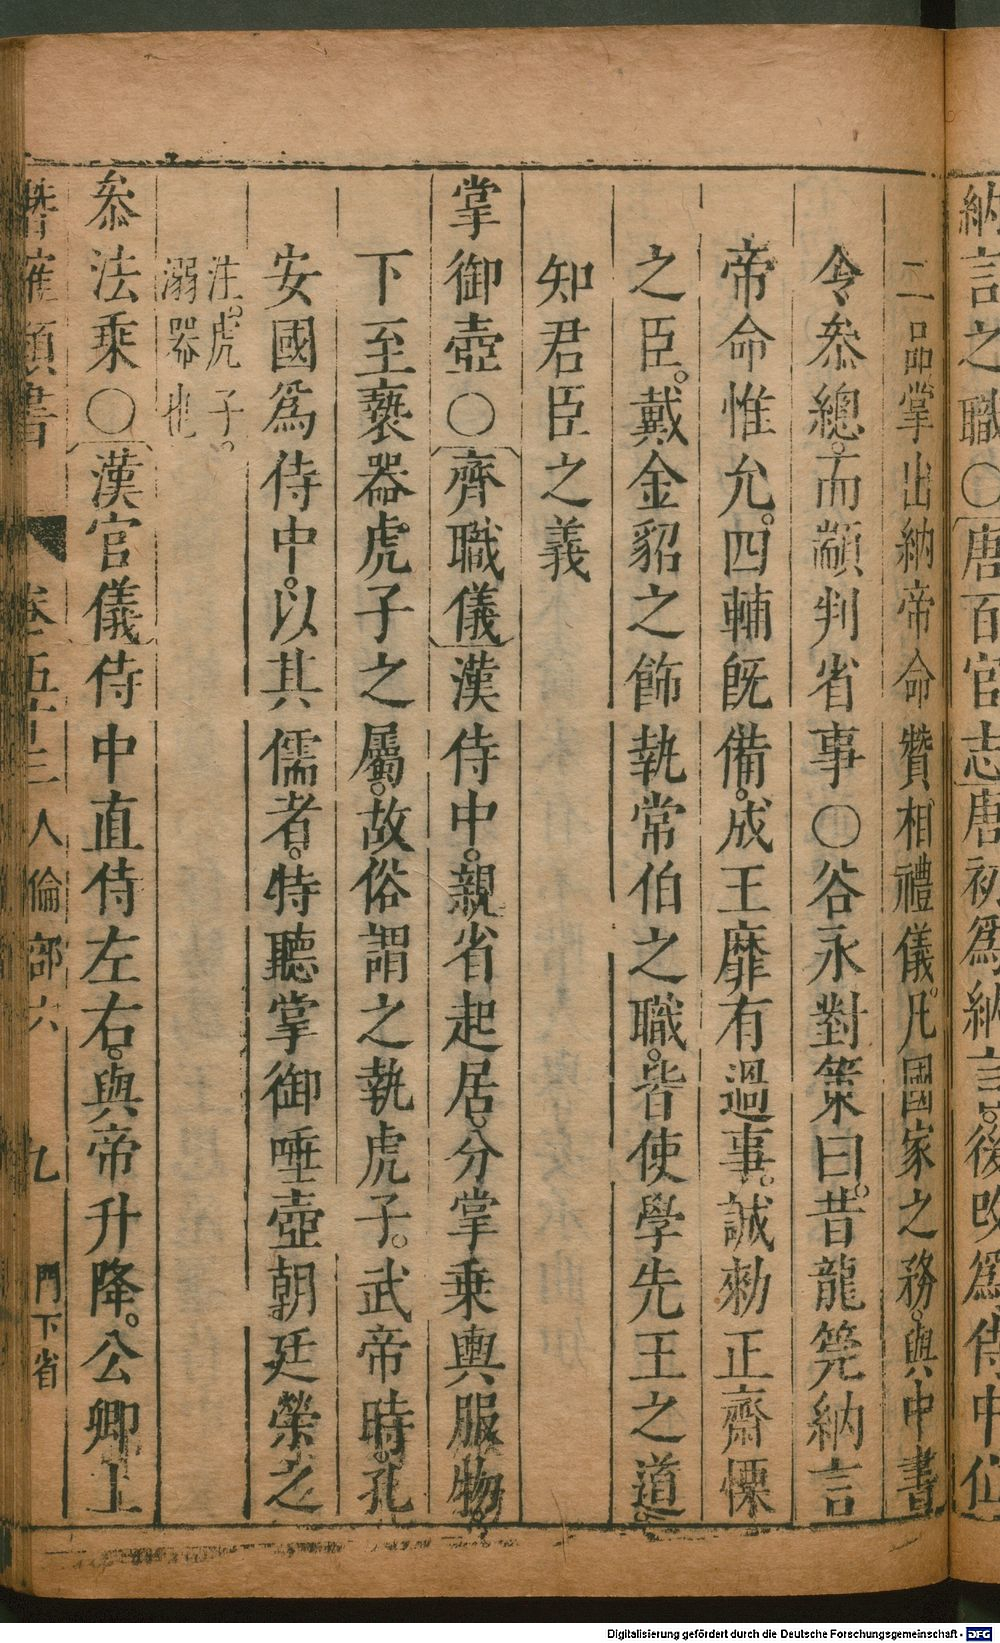 納言之職○唐百官志唐初爲納言。後改爲侍中。
二品掌出納帝命贊相禮儀。凡國家之務。與中書
令叅總。而顓判省事○谷永對策曰。昔龍筦納言
帝命惟允。四輔旣備。成王靡有過事。誠勑正齋慄
之臣。戴金貂之飾執常伯之職。皆使學先王之道。
知君臣之義
掌御壺○齊職儀漢侍中。親省起居。分掌乘輿服物。
下至褻器虎子之屬。故俗謂之執虎子。武帝時。孔
安國爲侍中。以其儒者。特聽掌御唾壺朝廷榮之
注。虎子。
溺器也
叅法乘○漢官儀侍中直侍左右。與帝升降。公卿上
潛確類書 卷五十二 人倫部六 九 門下省
Digitalisierung gefördert durch die Deutsche Forschungsgemeinschaft - DFG